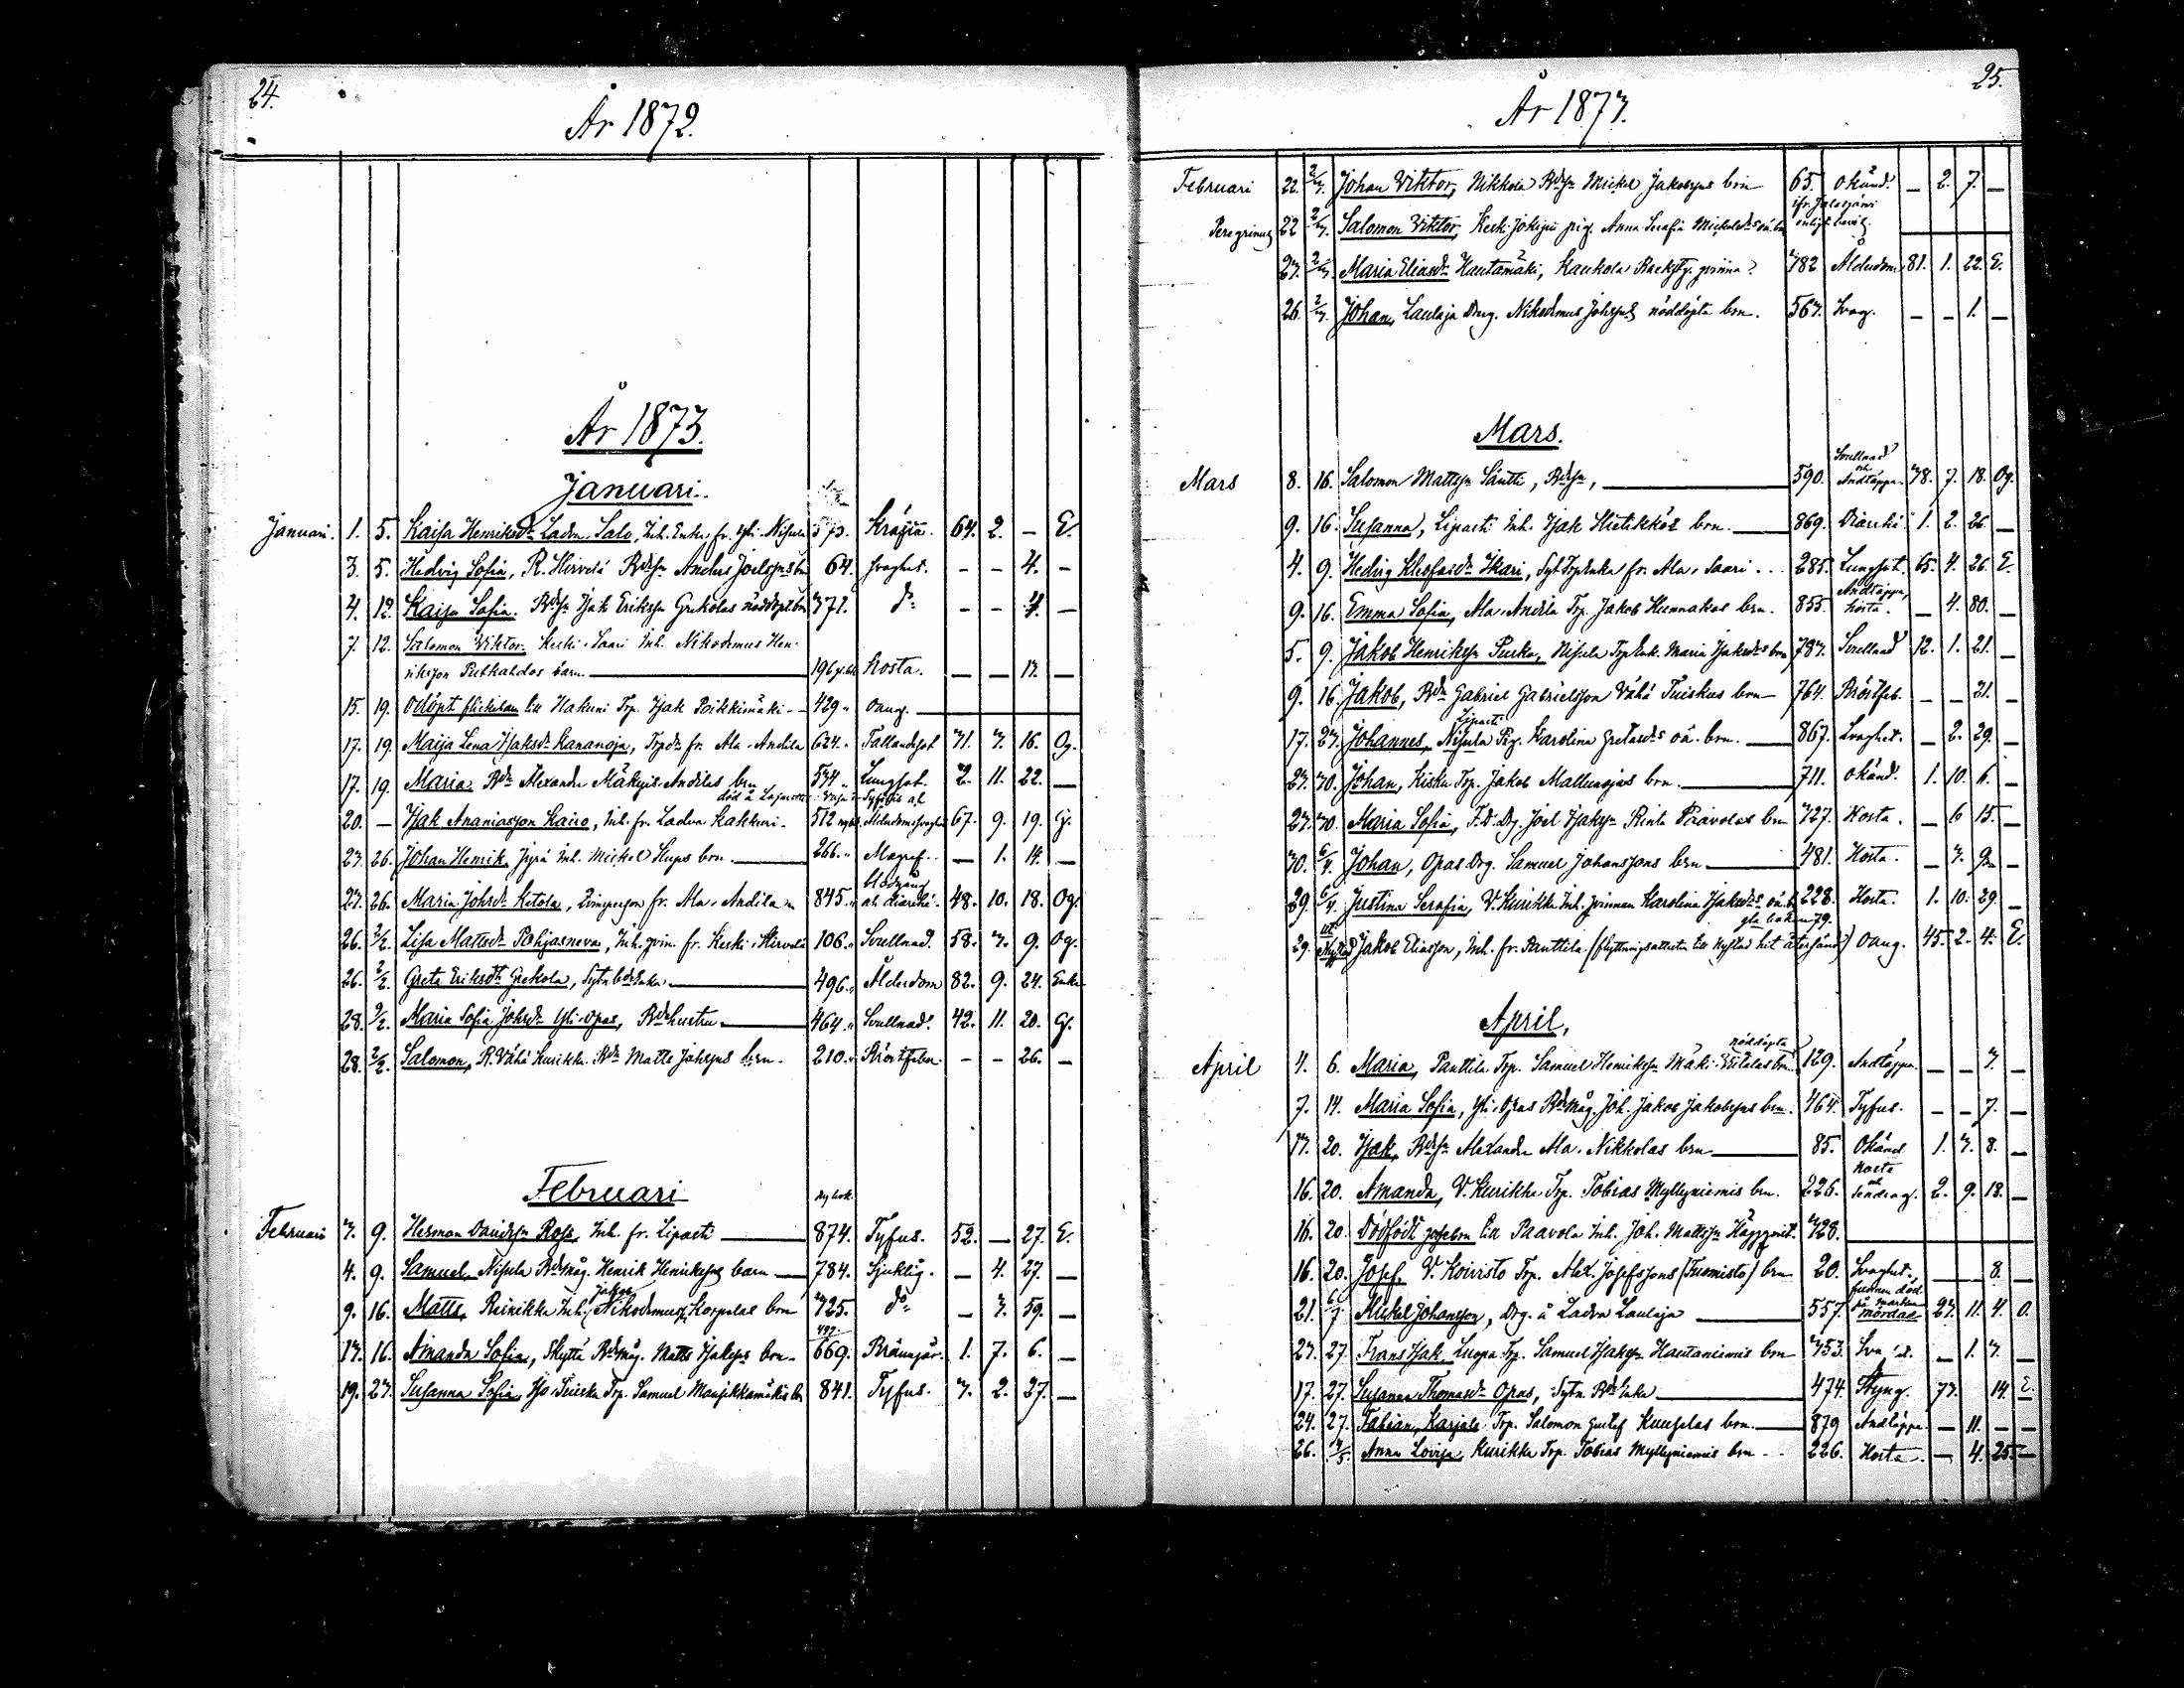 24.
År 1872.
År 1873.
Januari.
Januari. 1. 5. Kaisa Henriksdr Ladva Salo, Inh. Enka, fr. Yli-Nisula 573. Kräfta. 64. 2. - E.
3. 5. Hedvig Sofia, R. Hirvelä Bdsn Anders Joelsons bn 64. svaghet. - - 4. -
4. 12. Kaisa Sofia. Bdsn Isak Eriksson Grekolas nöddöpt. bn 371. do - - 4. -
7. 12. Salomon Viktor. Keski-Saari Inh. Nikodemus Hen-
riksson Putkahdos barn. 196 Hosta. - - 13. -
15. 19. Odöpt flickebarn till Hakuni Trp. Isak Poikkimäki - 429 " oang.
17. 19. Maija Lena Isaksdr Kananoja, Trpdr fr. Ala-Andila 624. " Fallandesot 31. 3. 16. Og.
17. 19. Maria. Bdn Alexander Mäkynis-Andilas brn 534 " Lungsot. 2. 11. 22. -
död å Lazarettet
20. - Isak Ananiasson Kairo, Inh. fr. Ladva Kakkuri. 512 Ålderdomssvaghet 67. 9. 19. G.
23. 26. Johan Henrik, Jyrä Inh. Mickel Hups brn. 266. " Magref. - 1. 14. -
23. 26. Maria Johsdr Ketola, Inh. fr. Ala-Andila 845. " blodgång och diarrhé. 48. 10. 18. Og.
26. 2/2. Lisa Mattsdr Pohjasneva, Inh. qvin. fr. Keski-Hirvelä 106. " Svullnad. 58. 3. 9. Og.
26. 2/2. Greta Eriksdr Grekola, Sytn. Bdsenka 496. " Ålderdom 82. 9. 24. Enka
28. 9/2. Maria Sofia Johsdr Yli-Opas, Bdehustru 464. " Svullnad. 42. 11. 20. G.
28. 2/2. Salomon, R. Vähä Kurikka Bdn Matts Johssons brn. 210. " Bröstfeber. - - 26. -
Februari
Ny bok.
Februari 3. 9. Herman Davidsson Ross, Inh. fr. Lipasti 874. Tyfus. 52. - 27. E.
4. 9. Samuel Nisula Bdsmåg. Henrik Henrikssons barn 784. Sjuklig. - 4. 27. -
9. 16. Matts, Reinikka Inh. Nikodemus Jakobs Korpelas brn 325. do - 3. 59. -
492.
13. 16. Amanda Sofia, Skyttä Bdsmåg. Matts Isakssons brn. 669. 1. 7. 6. -
19. 23. Susanna Sofia, Iso-Tuisku Trp. Samuel Mansikkamäkis bn 841. Tyfus. 3. 2. 27. -
25.
År 1873.
Februari 22. 2/3. Johan Viktor, Nikkola Bdsn Mickel Jakobssons brn 65. okänd. - 2. 7. -
Peregrinus 22 2/3. Salomon Viktor, Keski-Jokipii pig. Anna Serafia Mickelsdrs oä. bn fr. Jalasjärvi enligt bevis.
23. 2/3. Maria Eliasdr Hautamäki, Kaukola Backstg. qvinna 782 Ålderdom 81. 1. 22. E.
26. 2/3. Johan, Laulaja Drng. Nikodemus Johssons nöddöpta brn. 567. Svag. - - 1. -
Mars.
Mars 8. 16. Salomon Mattsson Säntti, Bdsn, 590. Svullnad och Andtäppa. 78. 7. 18. Og.
9. 16. Susanna, Lipasti Inh. Isak Hietikkös brn. 869. Diarrhé. 1. 2. 26 -
4. 9. Hedvig Kleofasdr Ikari, Syt. Trpenka fr. Ala-Saari 285. Lungsot. 65. 4. 26. E.
9. 16. Emma Sofia, Ala-Andila Trp. Jakob Hunnakos brn. 855. Andtäppa, hosta. - 4. 30. -
5. 9. Jakob Henriksson Purka, Nisula Trpenk. Maria Isaksdrs brn 787. Svullnad 12. 1. 21. -
9. 16. Jakob, Bdn Gabriel Gabrielsson Vähä Tuiskus brn 764. Bröstfeb. - - 21. -
Lipasti
17. 23. Johannes, Nisula Pig. Karolina Gretasdrs oä. brn. 867. Svaghet. - 2. 29. -
23. 30. Johan, Kisku Trp. Jakob Mallunojas brn. 711. okänd. 1. 10. 6. -
23. 30. Maria Sofia, F.D. Drg. Joel Isaksson Rinta Paavolas brn 327. Hosta. - 6 15. -
30. 6/4. Johan, Opas Drg. Samuel Johanssons brn 481. Hosta. - 3. 9. -
29. 6/4. Justina Serafia, V. Kurikka Inh. qvinnan Karolina Isaksdrs oä. b. 228. Hosta. 1. 10. 29. -
gla boken 79.
29. Jakob Eliasson, Inh. fr. Panttila (flyttningsattesten till Nyland hit återsänd) oang. 45. 2. 4. E.
April,
nöddöpta
April 4. 6. Maria, Panttila Trp. Samuel Henriksson Mäki-Viitalas brn. 129. Andtäppa. - - 3. -
7. 14. Maria Sofia, Yli-Opas Bdsmåg. Joh. Jakob Jakobssons brn. 464. Tyfus. - - 7. -
13. 20. Isak, Bdsn Alexander Ala-Nikkolas brn 85. Okänd 1. 3. 8. -
16. 20. Amanda, V. Kurikka Trp. Tobias Myllyniemis brn. 226. Hosta och 2. 9. 18. -
16. 20. Dödfödt gossebrn till Paavola Inh. Joh. Mattsson Häggqvist. 328.
16. 20. Josef, V. Koivisto Trp. Alex. Josefssons (Tuomisto) brn 20. Svaghet. - - 8. -
21. 6/7 Mickel Johansson, Drg. å Ladva Laulaja 557. funnen död på marken mördad 23. 11. 4. O.
23. 27. Frans Isak, Luopa Trp. Samuel Isaksson Hautaniemis brn 353. - 1. 3. -
17. 27. Susanna Thomasdr Opas, Sytn. Bdsenka 474. Styng. 73. 14. E.
24. 27. Fabian, Karjala Trp. Salomon Gustaf Kuuselas brn. 879 Andtäppa. - 11. - -
26. 4/5. Anna Lovisa, Kurikka Trp. Tobias Myllyniemis brn 226. Hosta. - 4. 25. -